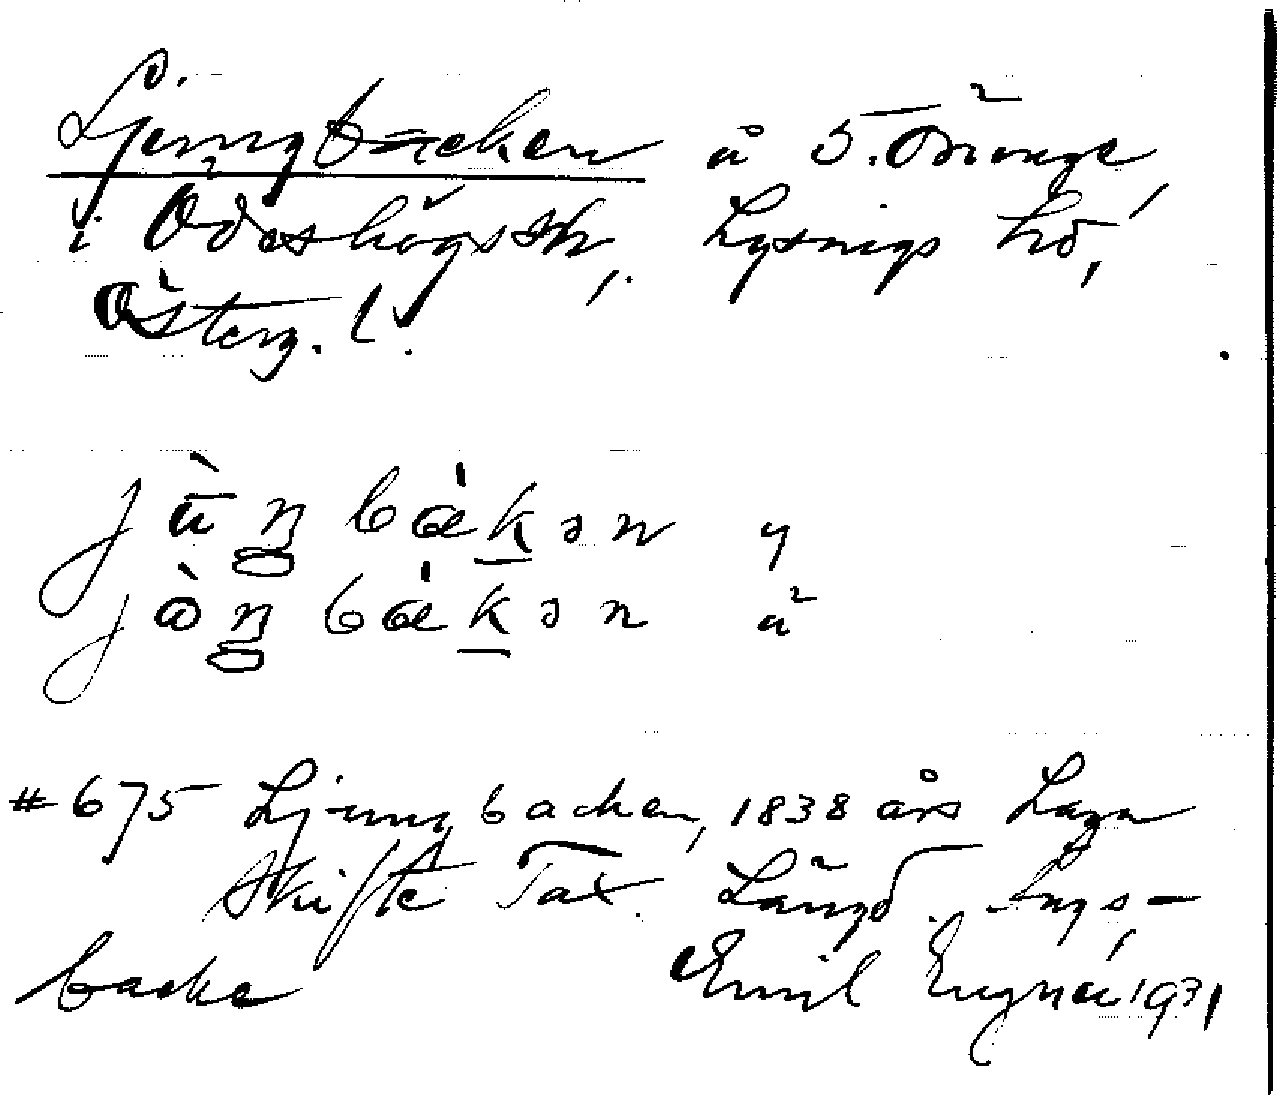 Ljungbacken å S. Öninge
i Ödeshögs sn, Lysings hd,
Österg. l.
jūŋ bakən y
jòŋ bakən å
#675 Ljungbacken, 1838 års Laga
skifte Tax. Längd.
backe Emil 1931